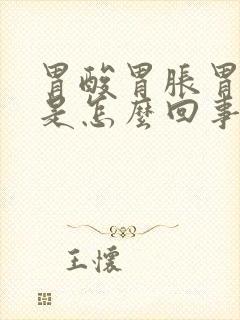 胃酸胃脹胃
是怎麼回事
王懷